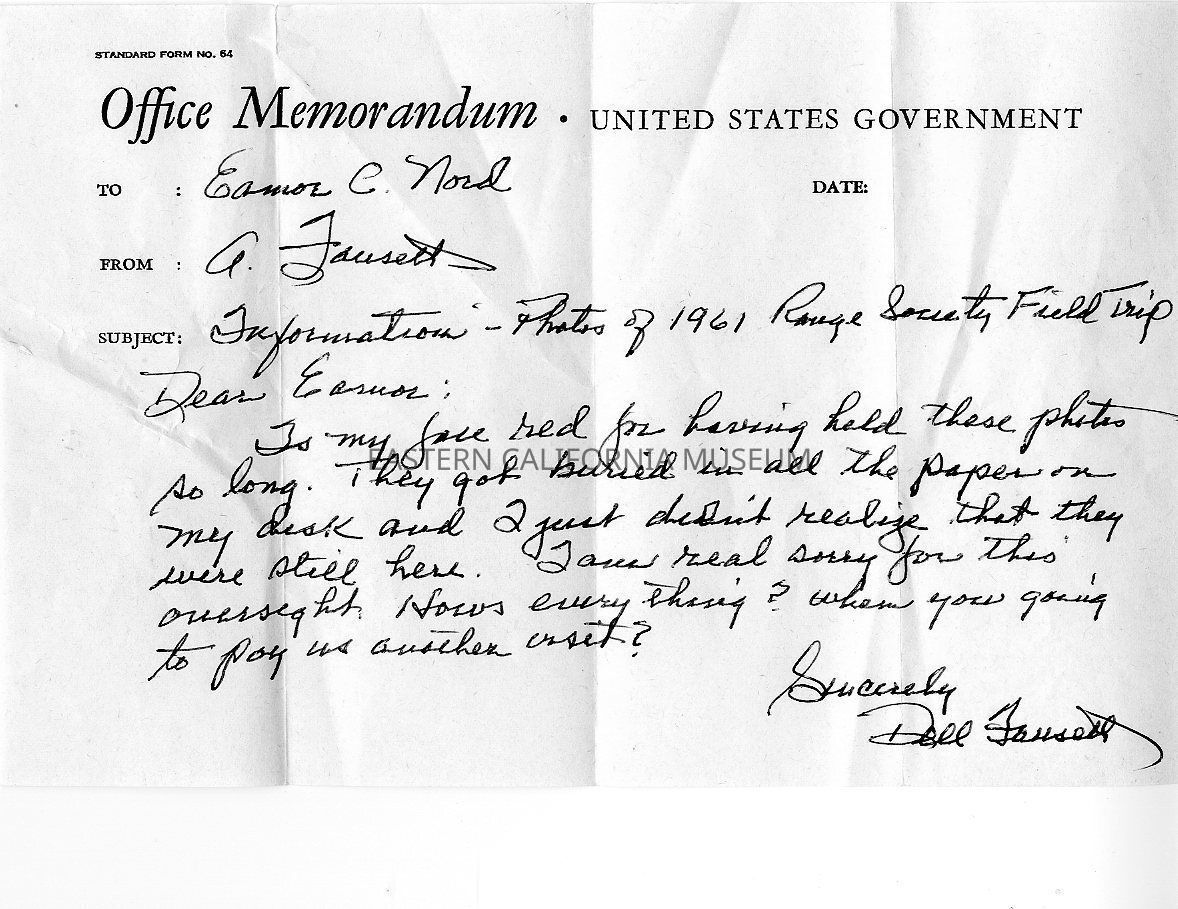 STANDARD FORM NO. 64
Office Memorandum • UNITED STATES GOVERNMENT
TO : Eamor C. Nord
DATE:
FROM : A. Fausett
SUBJECT: Information - Photos of 1961 Range Society Field Trip
Dear Eamor:
Is my face red for having held these photos
EASTERN CALIFORNIA MUSEUM
so long. They got buried in all the paper on
my desk and I just didn't realize that they
were still here. I am real sorry for this
oversight. Hows everything? when you going
to pay us another visit?
Sincerely
Dell Fausett